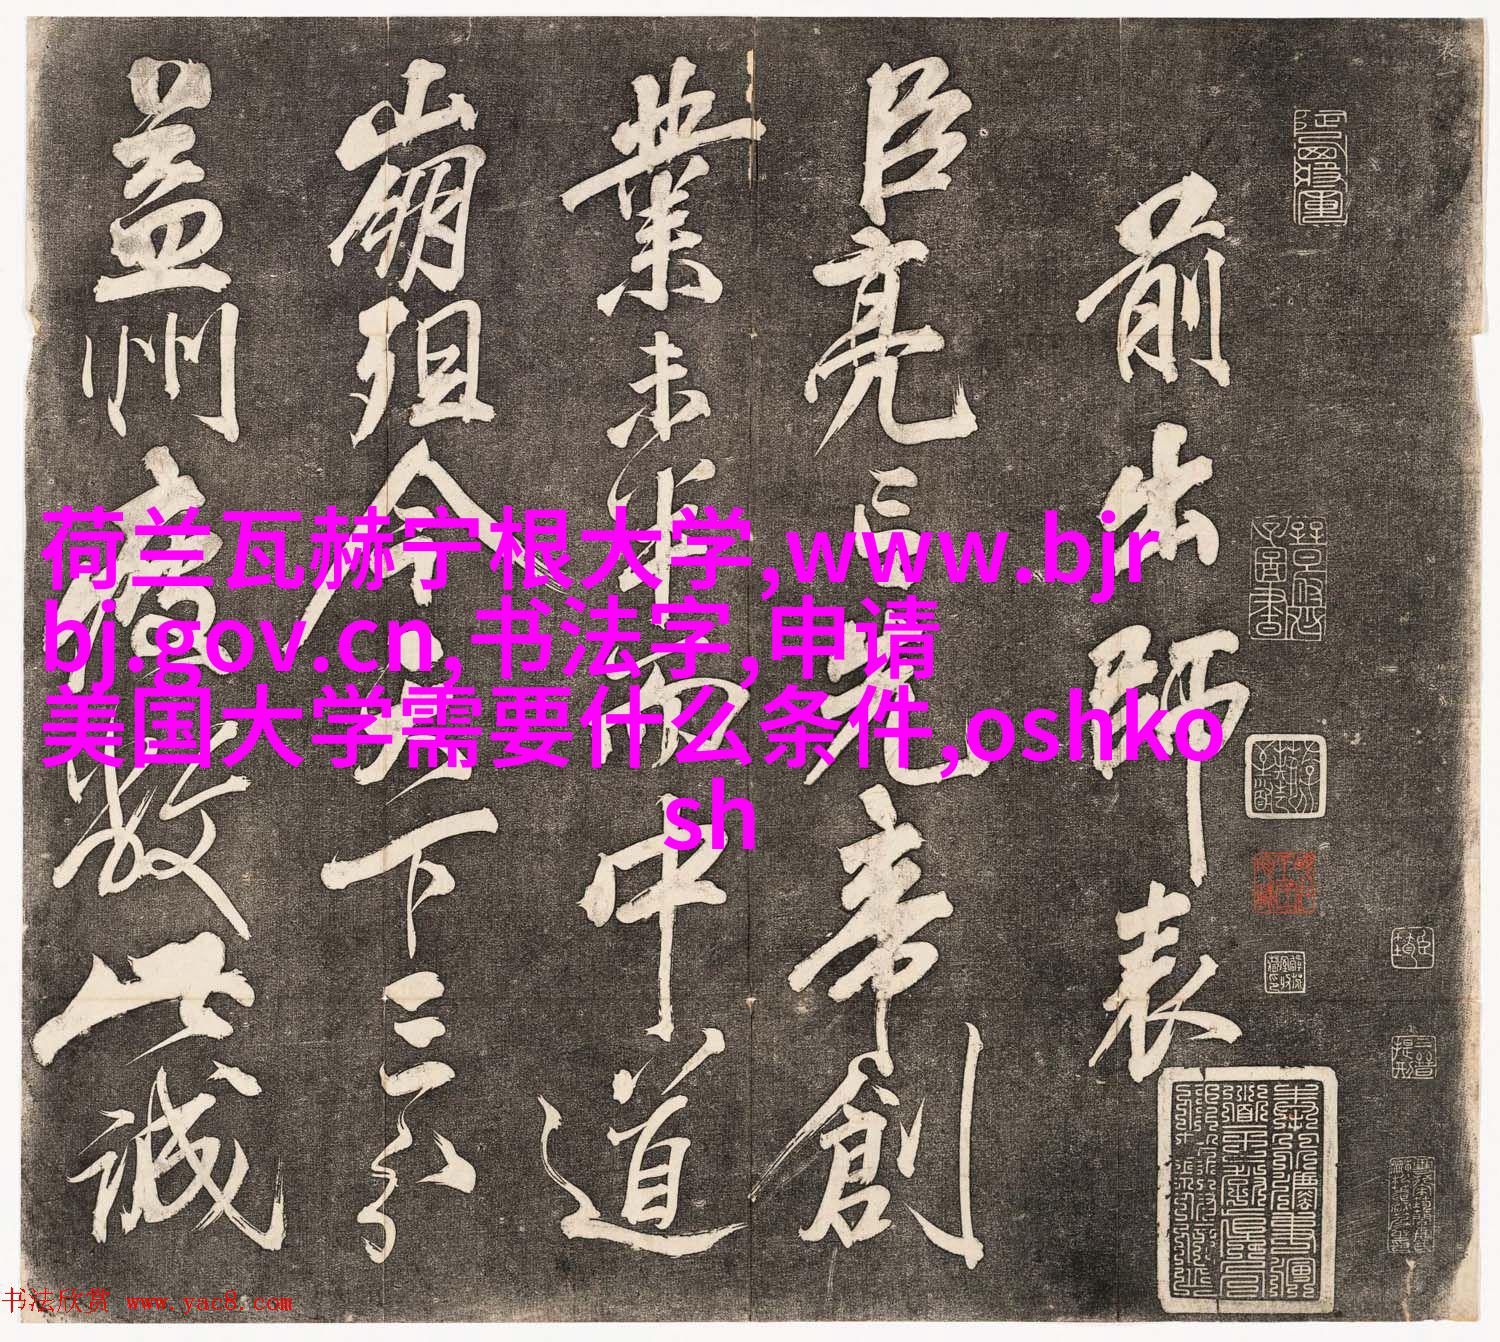 前出師表
臣亮言先帝創
業未半而中道
崩殂今天下三分
益州疲敝此誠
荷兰瓦赫宁根大学,www.bjr
bj.gov.cn,书法字,申请
美国大学需要什么条件,oshko
sh
书法欣赏 www.yac8.com